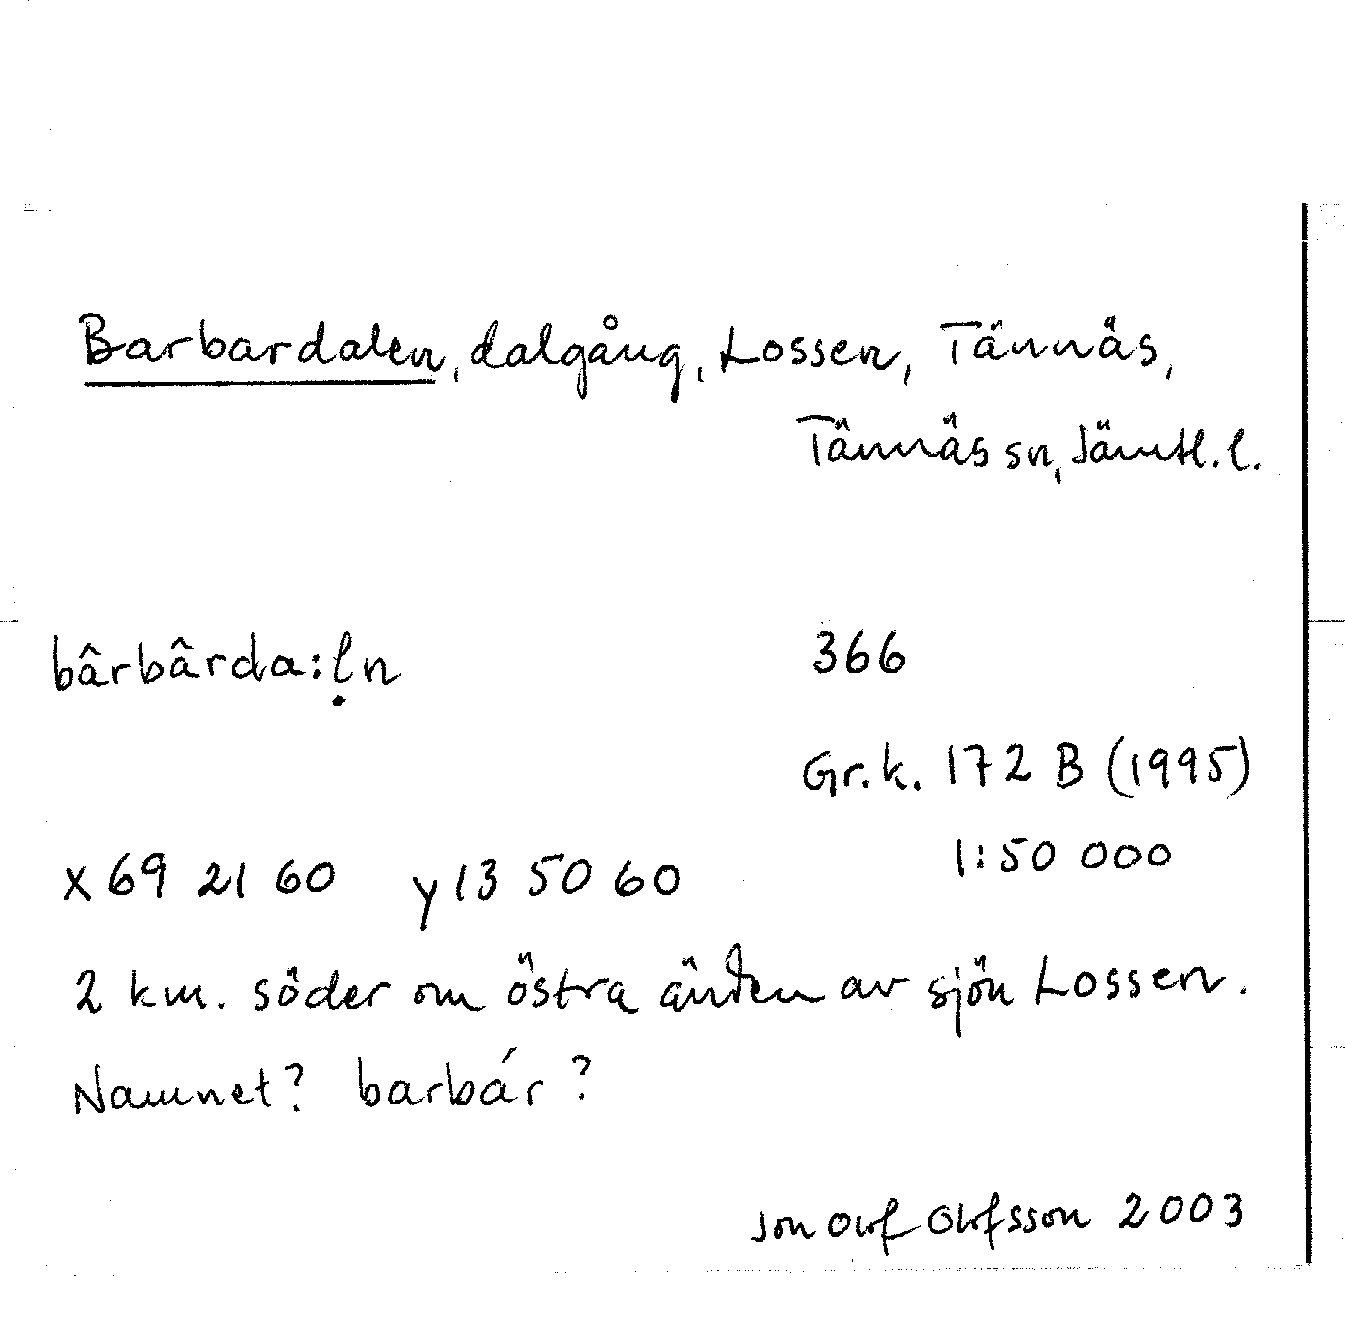 Barbardalen, dalgång, Lossen, Tännäs,
Tännäs sn, Jämtl. l.
bârbârda:ḷn 366
Gr.k. 172 B (1995)
1:50 000
x 69 21 60 y 13 50 60
2 km. söder om östra änden av sjön Lossen.
Namnet? barbár?
Jon Olof Olofsson 2003